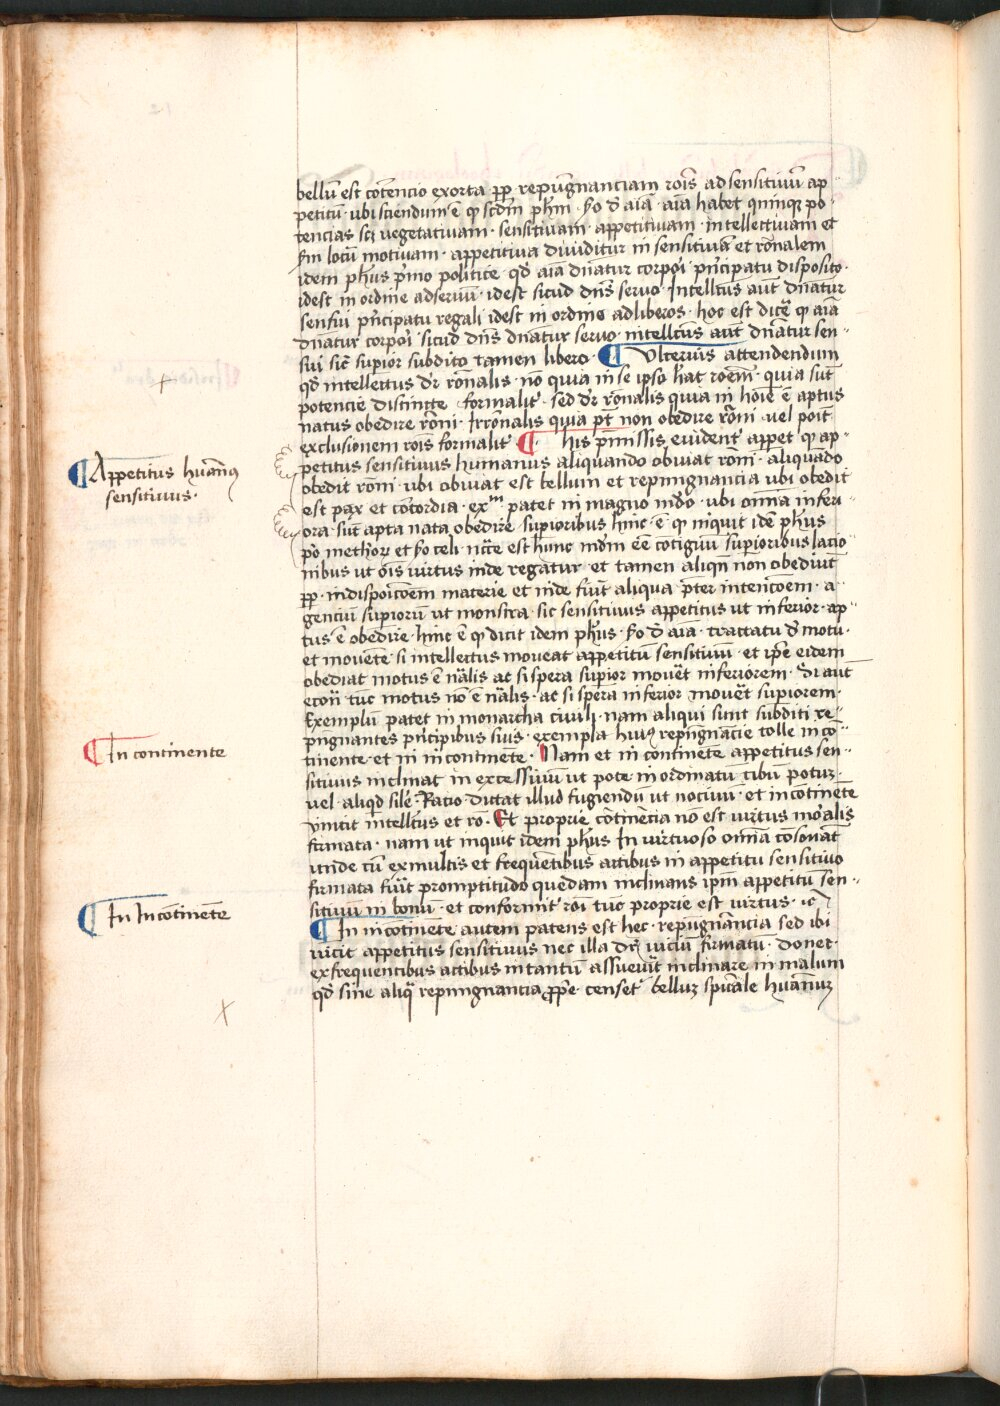 bellū est cōtencio exorta ꝓp repūgnanciam rōis ad sensitiuū ap
petitū · ubi sciendum ē ꝙ scd̄m ph̄m · 2o d̄ aīa · aīa habet quinqꝫ po
tencias scꝫ vegetatiuam · sensitiuam · appetitiuam · intellectiuam et
sm̄ locū motiuam · appetitiua diuiditur in sensitiuā et rōnalem
idem ph̄us p̄mo politice qd̄ aīa dn̄atur corpori p̄ncipatu disposito ·
idest in ordine ad seruū · idest sicud dn̄s seruo · Intellectus aūt dn̄atur
sensui p̄ncipatu regali idest in ordine ad liberos · hoc est dicē ꝙ aīa
dn̄atur corpori sicud dn̄s dn̄atur seruo intellectus aūt dn̄atur sen-
sui sic̄ supior subdito tamen libero · ¶ Vlterius attendendum
qd̄ intellectus dr̄ rōnalis · nō quia in se ipso h̄at roēm · quia sūt
potencie distincte formalit̄ · sed dr̄ rōnalis quia in hoīe ē aptus
natus obedire rōni · Irrōnalis quia pt̄ non obedire rōni · uel poīt
exclusionem rōis formalit̄ ¶ · his p̄missis euident̄ appet ꝙ ap-
petitus sensitiuus humanus aliquando obuiat rōni · aliquādo
obedit rōni · ubi obuiat est bellum et repūgnancia ubi obedit
est pax et cōcordia · exᵐ patet in magno mdō · ubi omīa inferi
ora sūt apta nata obedire supioribus hinc · ē ꝙ inquit idē ph̄us
po methoꝝ et 2o celi nc̄te est hūnc mdm̄ eē cōtiguū supioribus lacio
nibus ut ois virtus inde regatur et tamen aliqn̄ non obediūt
ꝓp · indispoicōem materie et inde fiūt aliqua p̄ter intencōem · a
genciū supiorū ut monstra sic sensitiuus appetitus ut inferior · ap
tus ē obedire · hinc ē ꝙ dicit idem ph̄us · 2o d̄ aīa · tractatu d̄ motu ·
et mouēte · si intellectus moueat appetitū sensitiuū · et ip̄e eidem
obediat motus ē nālis ac si spera supior mouēt inferiorem · Si aūt
econ̄ tūc motus nō ē nālis · ac si spera inferior mouēt supiorem ·
Exemplū patet in monarcha ciuili · nam aliqui sunt subditi re-
pūgnantes p̄ncipibus suis · exempla huiꝰ repūgnācie tolle in co-
tinente · et in incontinēte · Nam et in continēte appetitus sēn-
sitiuus inclinat in excessiuū ut pote in ordinatū cibū potuꝫ ·
uel aliqd̄ silē · Ratio dictat illud fugiendū ut nociuū · et in cōtinēte
vincit intellctus et ro · Et proprie cōtinēcia nō est virtus moralis
firmata · nam ut inquit idem ph̄us In virtuoso omīa cōsonāt
unde cū ex multis et frequētibus actibus in appetitu sensitiuo
firmata fūit promptitudo quedam inclinans ipm̄ appetitū sen-
sitiuū in bonū · et conformit̄ rōi tūc proprie est uirtus · ꝛc
¶ In incōtinēte autem patens est hec · repūgnancia sed ibi
uicit appetitus sensitiuus nec illa dr̄ uiciū firmatū · donec
ex frequentibus actibus in tantū assueuīt inclinare in malum
qd̄ sine aliq̄ repūgnancia ꝓp̄e censet̄ belluꝫ spirāle hūanuꝫ
¶ Appetitus hūanꝰ
sensitiuus ·
¶ In continente
¶ In Incōtinēte